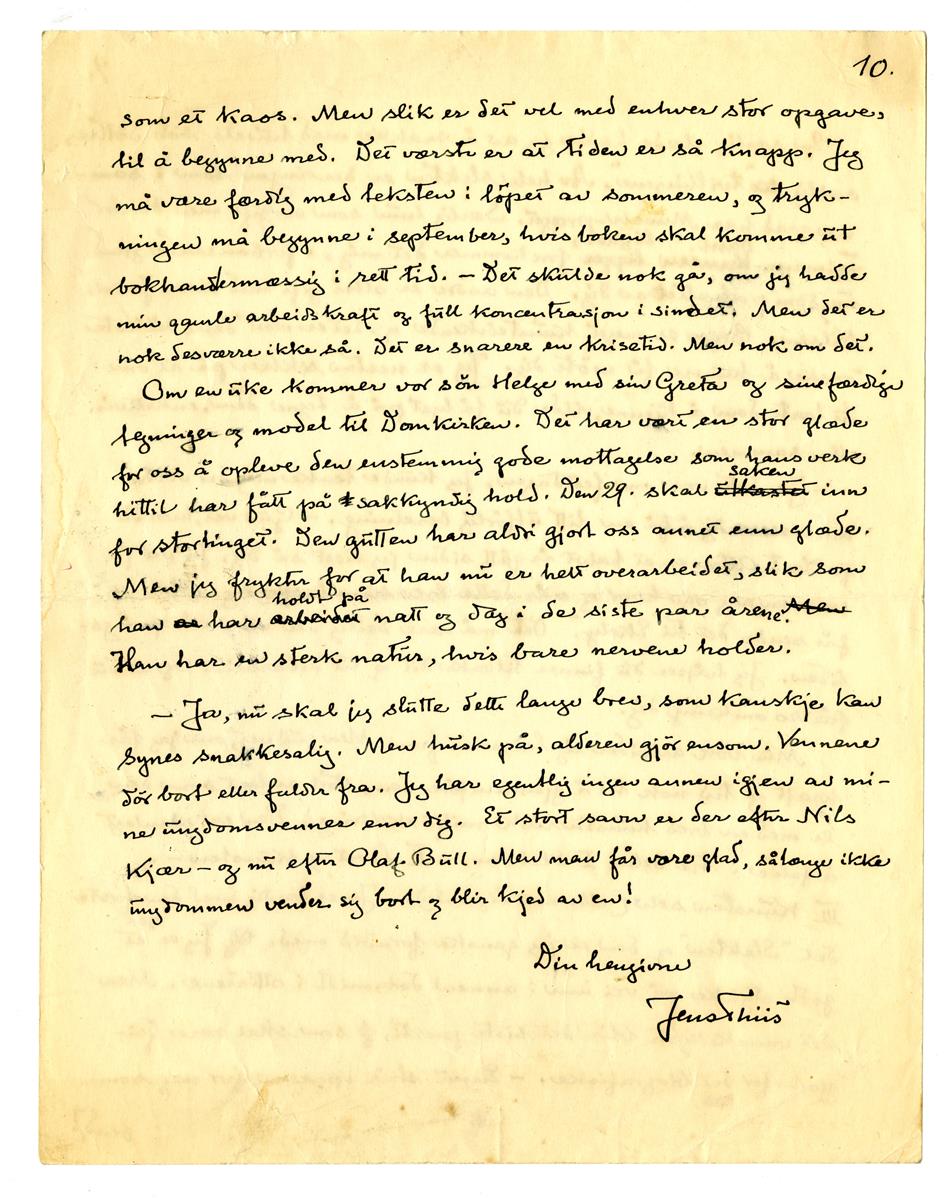 10.
som et kaos. Men slik er det vel med enhver stor opgave,
til å begynne med. Det værste er at tiden er så knapp. Jeg
må være færdig med teksten i löpet av sommeren, og tryk-
ningen må begynne i september, hvis boken skal komme ut
bokhandlermæssig i rett tid. – Det skulde nok gå, om jeg hadde
min gamle arbeidskraft og full koncentrasjon i sindet. Men det er
nok desværre ikke så. Det er snarere en krisetid. Men nok om det.
Om en uke kommer vor sön Helge med sin Greta og sine færdige
tegninger og model til Domkirken. Det har vært en stor glæde
for oss å opleve den enstemmig gode mottagelse som hans verk
hittil har fått på sakkyndig hold. Den 29. skal utkastet saken inn
for stortinget. Den gutten har aldri gjort oss annet enn glæde.
Men jeg frykter for at han nu er helt overarbeidet, slik som
han har arbeidet holdt på natt og dag i de siste par årene. Men
Han har en sterk natur, hvis bare nervene holder.
– Ja, nu skal jeg slutte dette lange brev, som kanskje kan
synes snakkesalig. Men husk på, alderen gjör ensom. Vennene
dör bort eller falder fra. Jeg har egentlig ingen annen igjen av mi-
ne ungdomsvenner enn dig. Et stort savn er der efter Nils
Kjær – og nu efter Olaf Bull. Men man får være glad, sålænge ikke
ungdommen vender sig bort og blir kjed av en!
Din hengivne
Jens Thiis